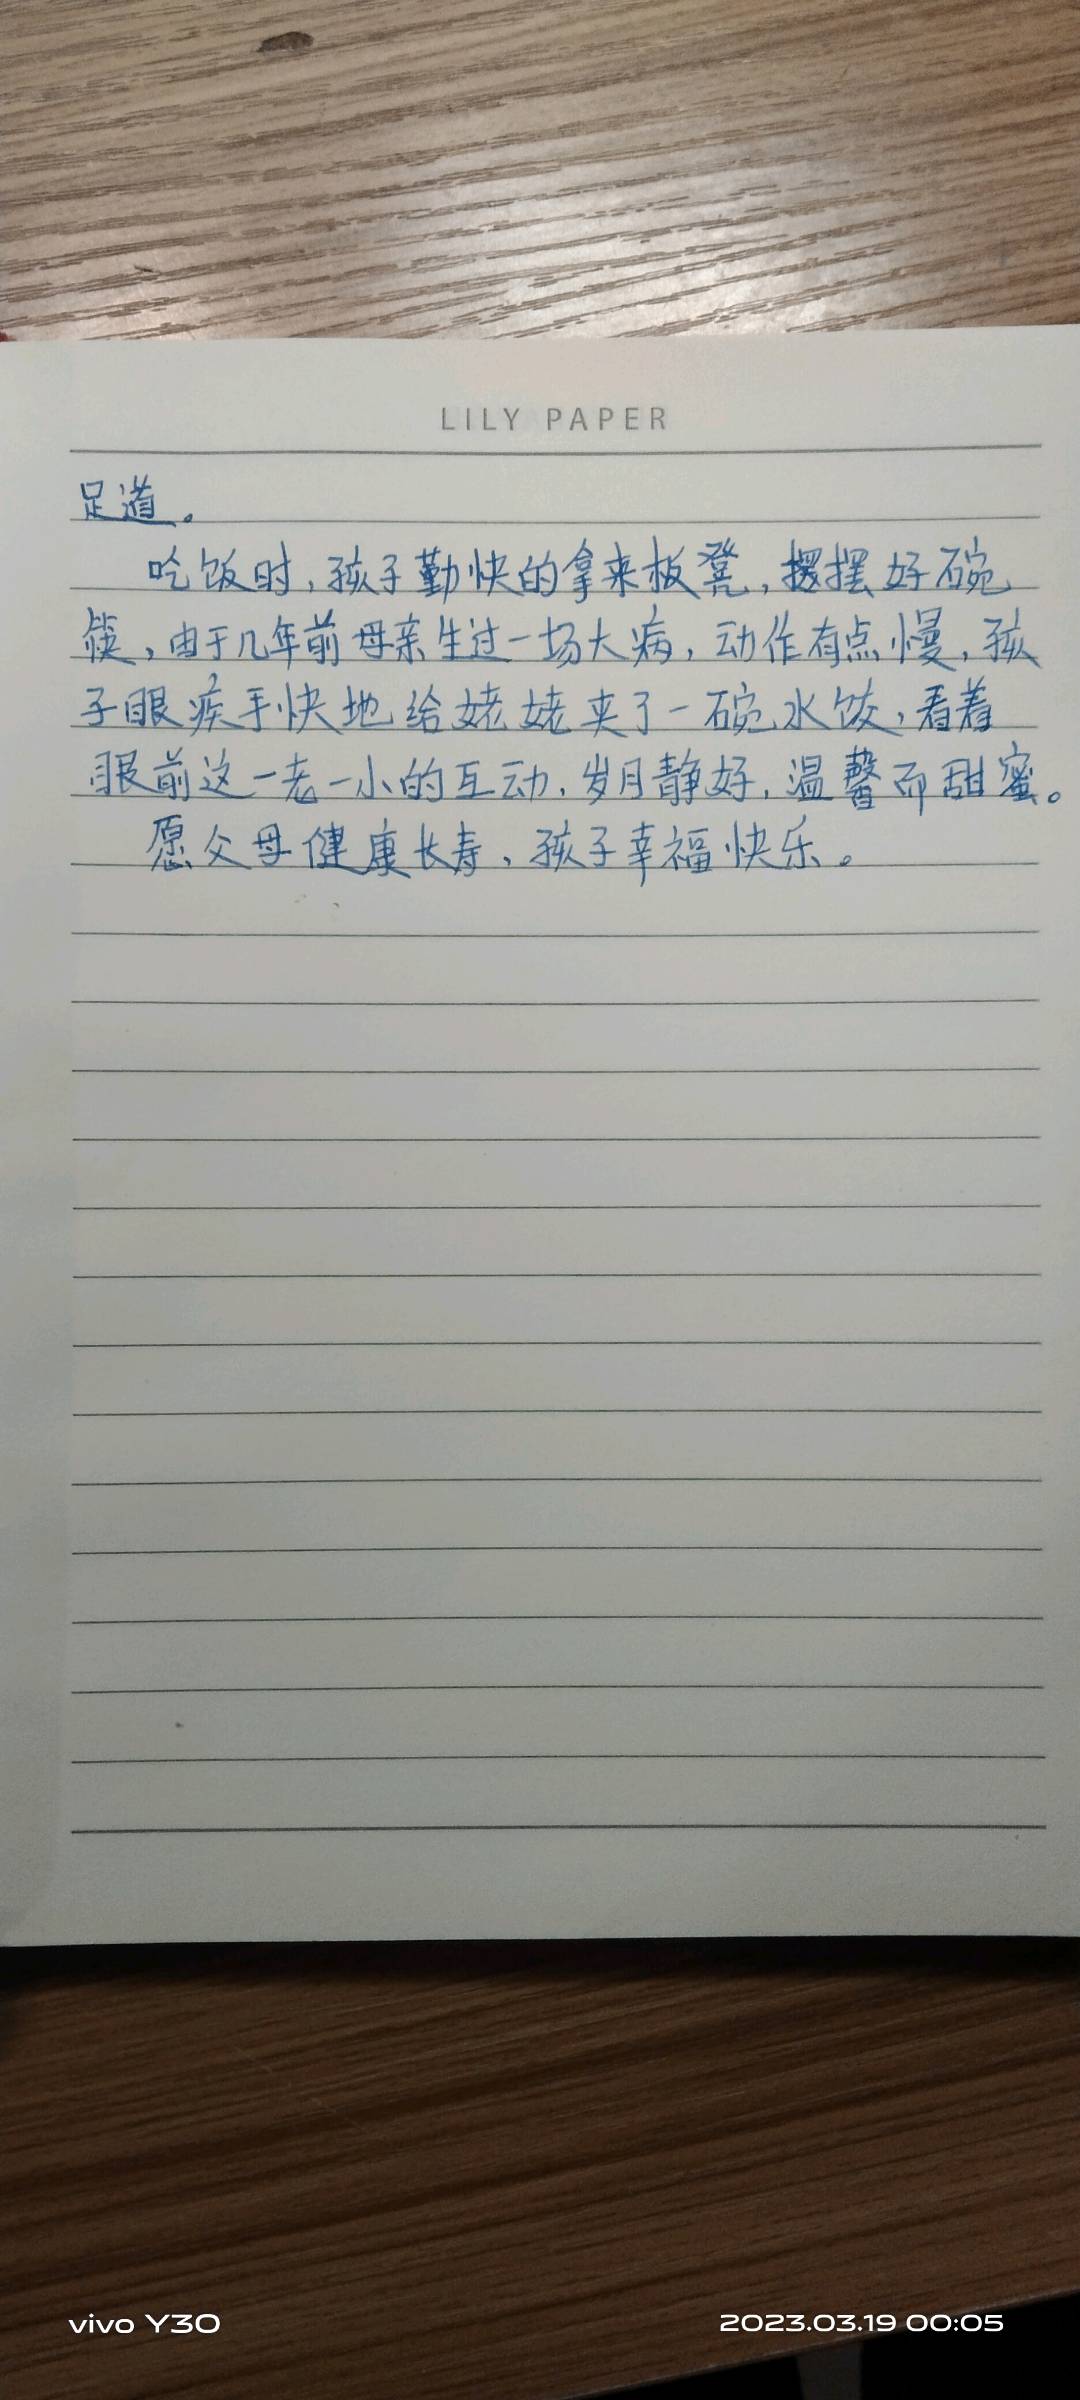 LILY PAPER
足道。
吃饭时,孩子勤快的拿来板凳,摆好碗
筷,由于几年前母亲生过一场大病,动作有点慢,孩
子眼疾手快地给姥姥夹了一碗水饺,看着
眼前这一老一小的互动,岁月静好,温馨而甜蜜。
愿父母健康长寿,孩子幸福快乐。
vivo Y30
2023.03.19 00:05